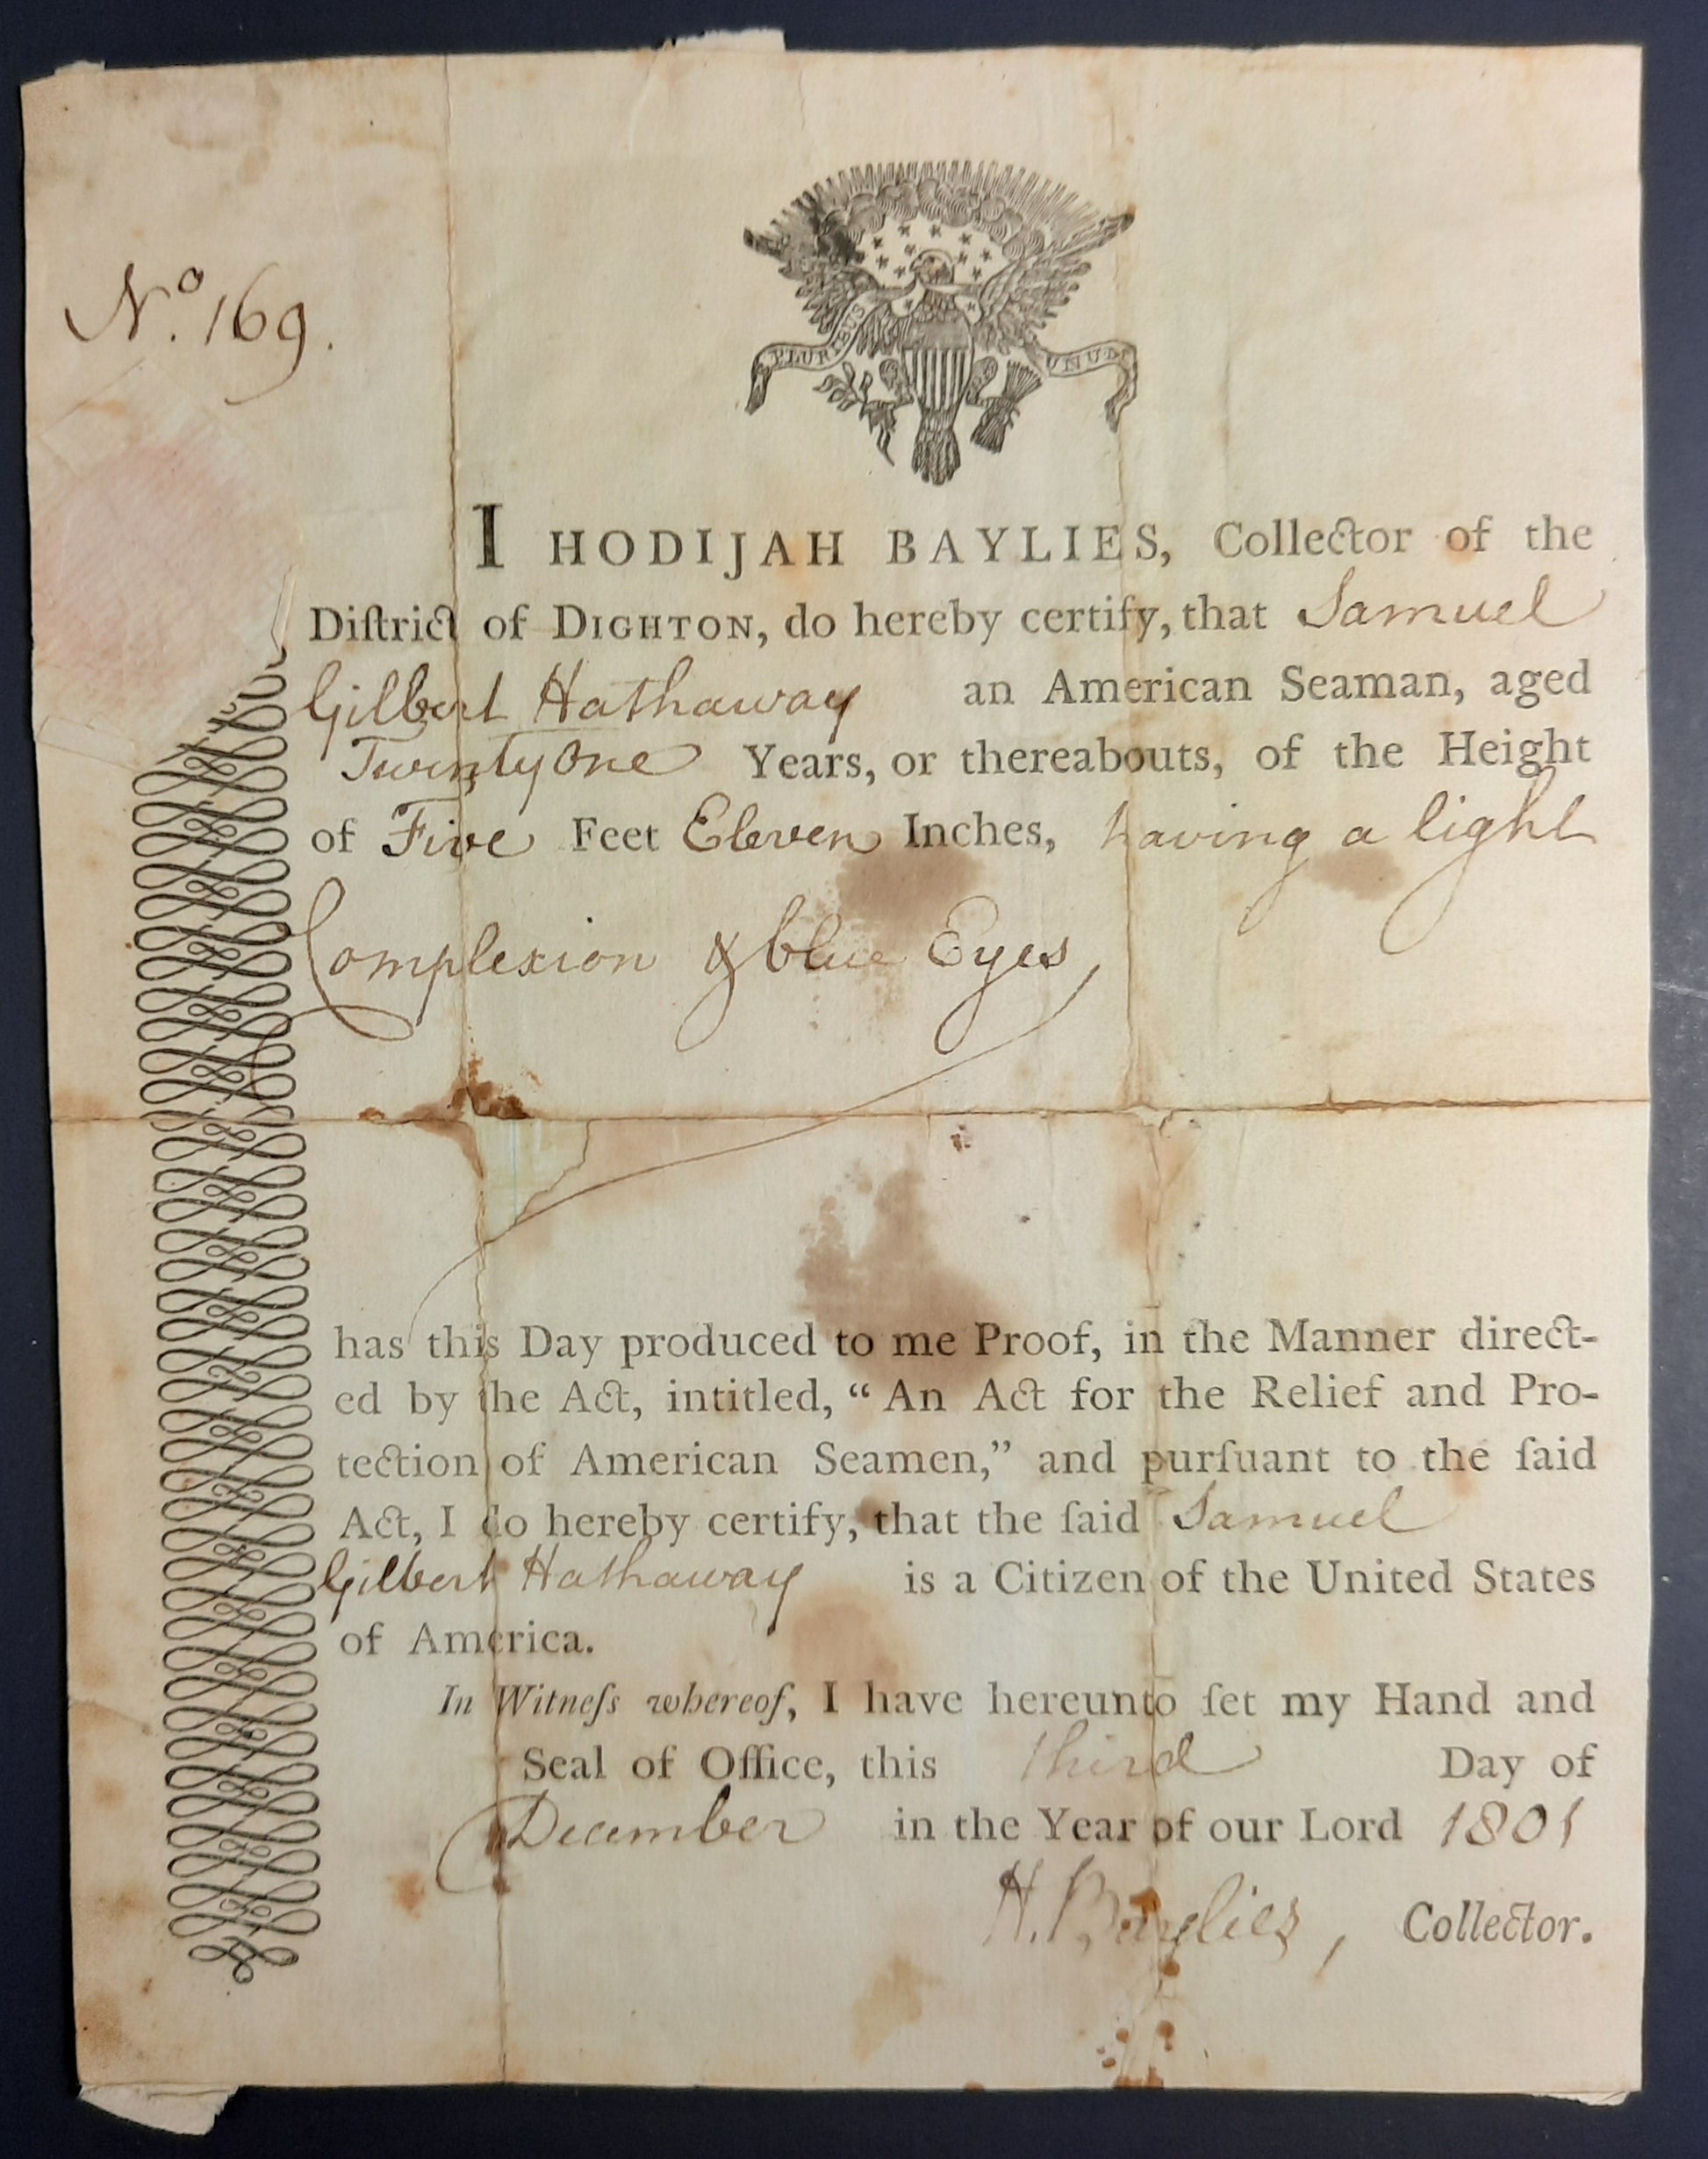 No. 169.
PLURIBUS UNUM
I HODIJAH BAYLIES, Collector of the
Diſtrict of DIGHTON, do hereby certify, that Samuel
Gilbert Hathaway an American Seaman, aged
Twenty One Years, or thereabouts, of the Height
of Five Feet Eleven Inches, having a light
Complexion & blue Eyes,
has this Day produced to me Proof, in the Manner direct-
ed by the Act, intitled, “ An Act for the Relief and Pro-
tection of American Seamen,” and purſuant to the ſaid
Act, I do hereby certify, that the ſaid Samuel
Gilbert Hathaway is a Citizen of the United States
of America.
In Witneſs whereof, I have hereunto ſet my Hand and
Seal of Office, this third Day of
December in the Year of our Lord 1801
H. Baylies, Collector.